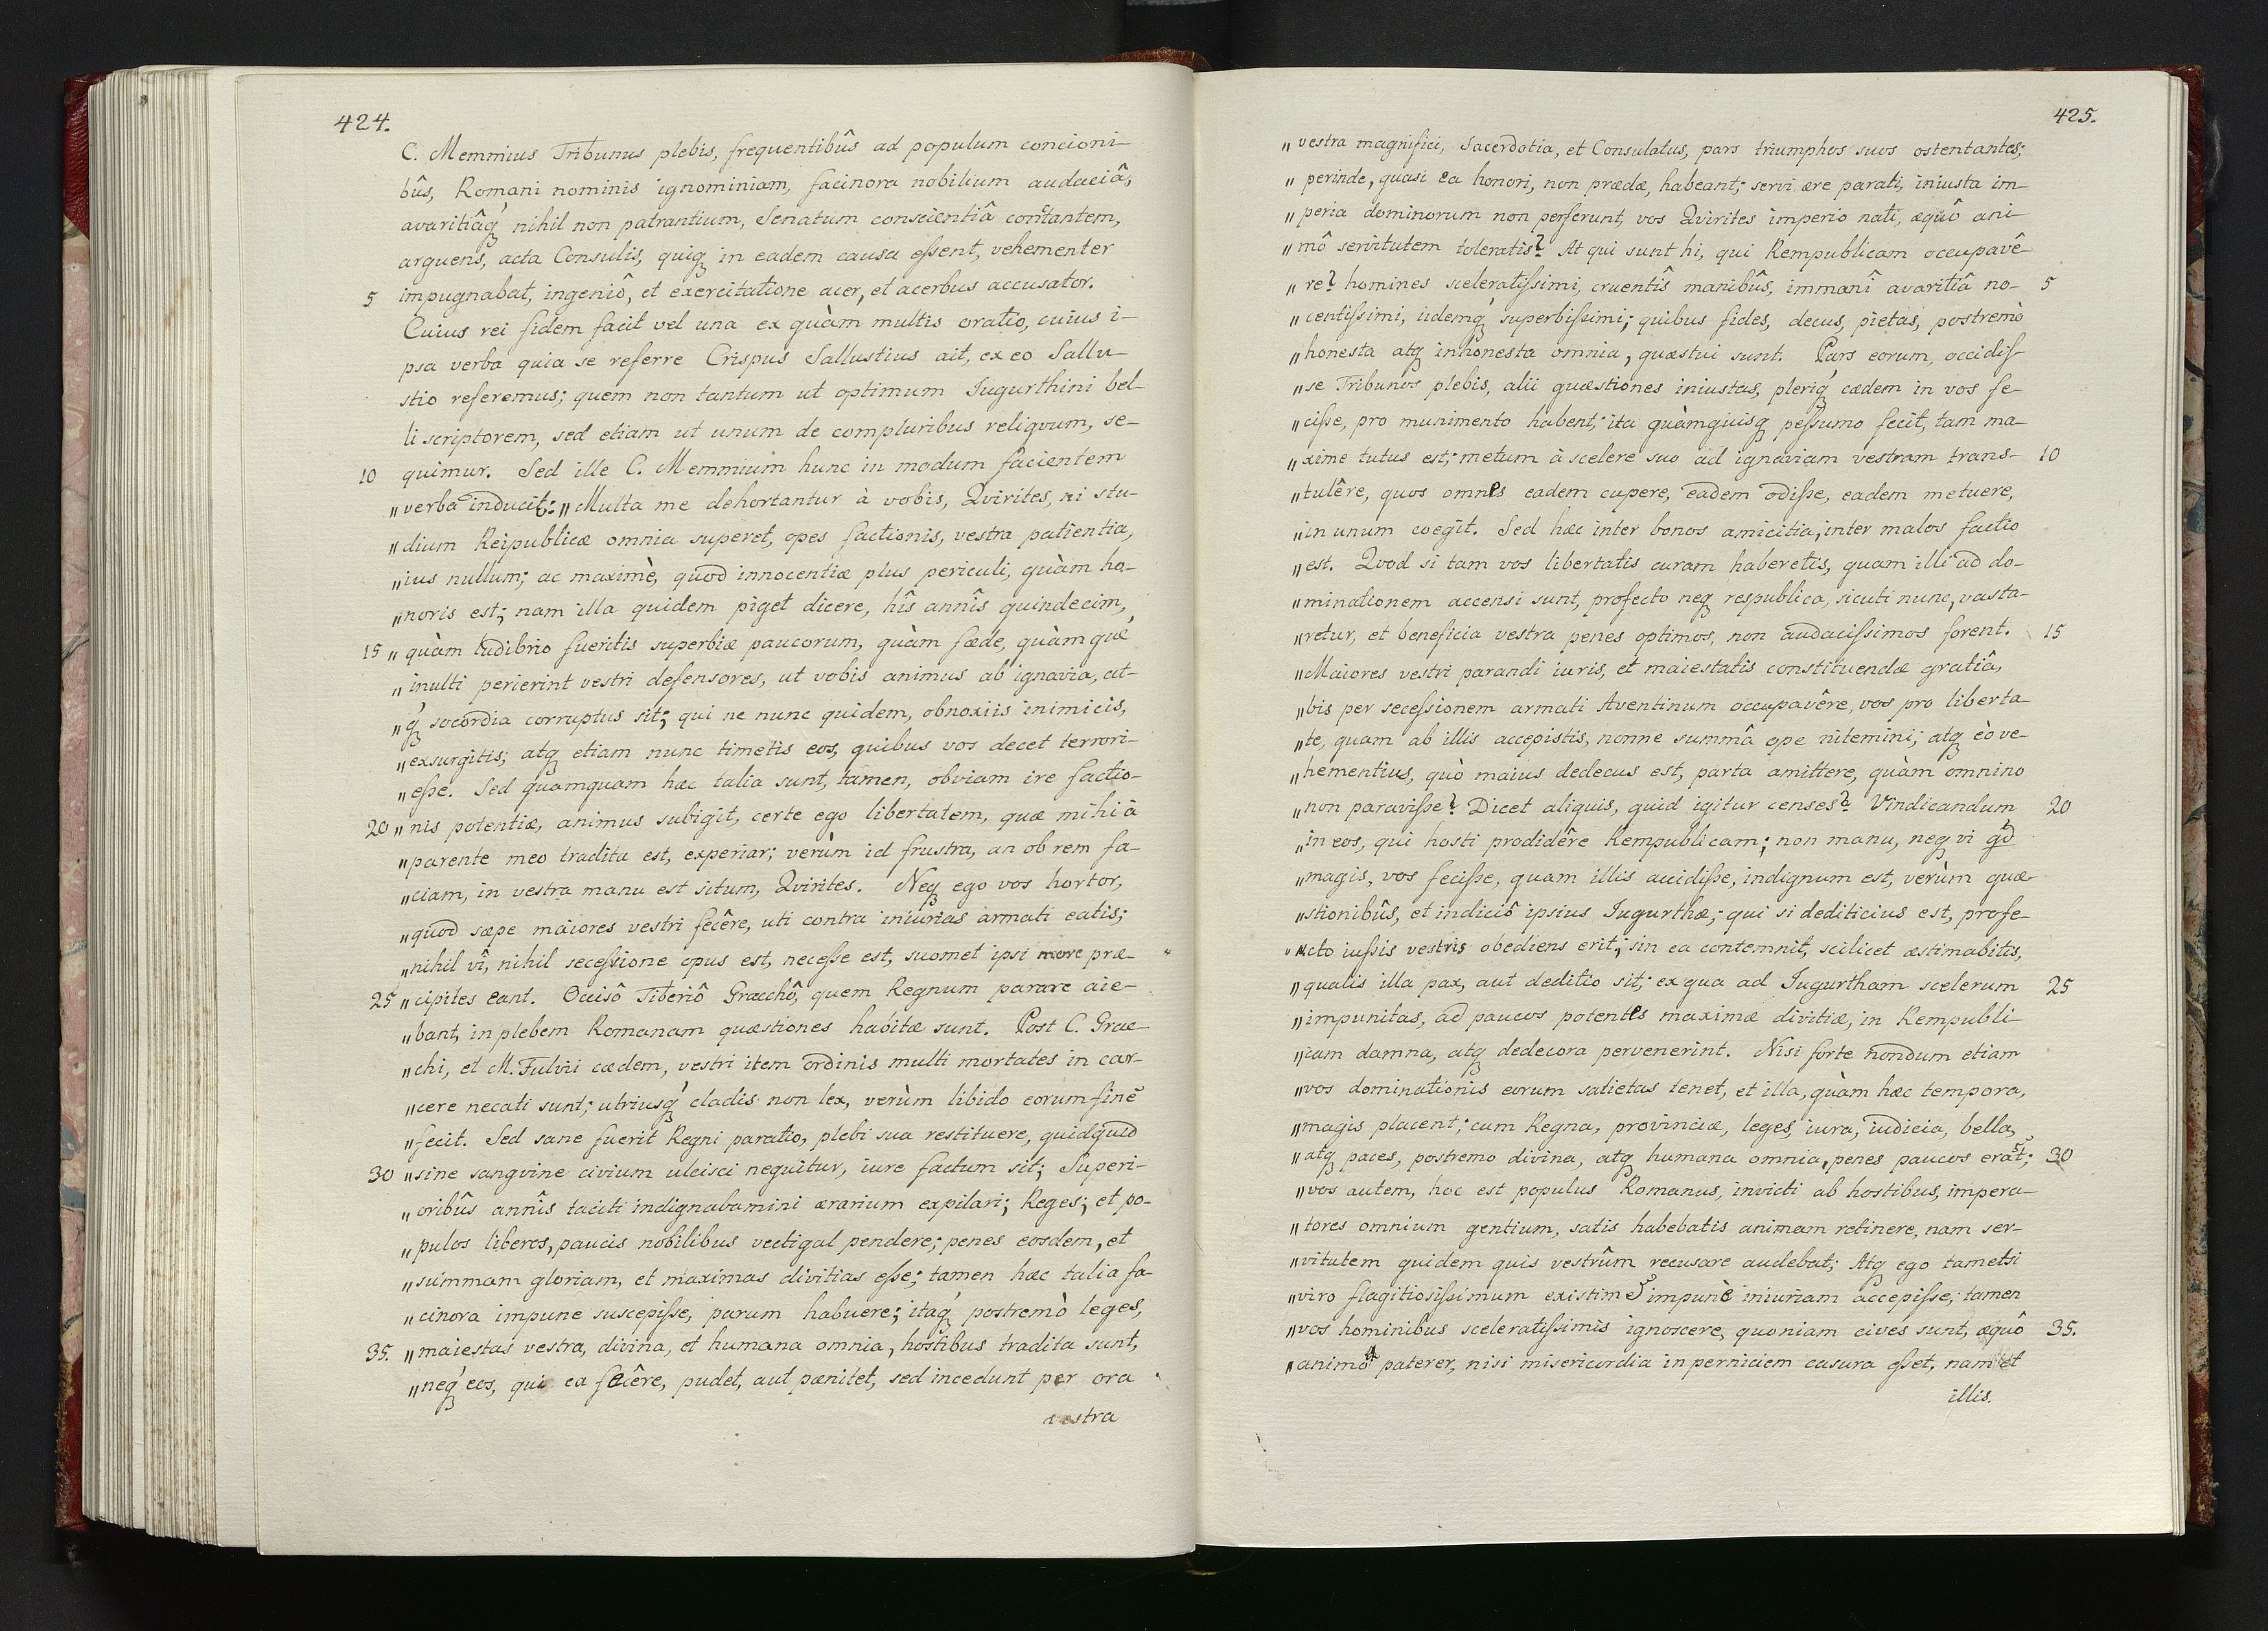 424.
C. Memmius Tribunus plebis, frequentibûs ad populum concioni-
bûs, Romani nominis ignominiam, facinora nobilium audaciâ,
avaritiâq́ꝫ nihil non patrantium, Senatum conscientiâ contantem,
arguens, acta Consulis, quiqꝫ in eadem causa eſsent, vehementer
5 impugnabat, ingeniô, et exercitatione acer, et acerbus accusator.
Cuius rei fidem facit vel una ex quàm multis oratio, cuius i-
psa verba quia se referre Crispus Sallustius ait, ex eo Sallu-
stio referemus; quem non tantum ut optimum Iugurthini bel-
li scriptorem, sed etiam ut unum de compluribus reliqvum, se-
10 quimur. Sed ille C. Memmium hunc in modum facientem
„verba inducit: „Multa me dehortantur à vobis, Qvirites, ni stu-
„dium Reipublicæ omnia superet, opes factionis, vestra patientia,
„ius nullum; ac maximè, quod innocentiæ plus periculi, quàm ho-
„noris est; nam illa quidem piget dicere, hîs annîs quindecim,
15 „quàm ludibrio fueritis superbiæ paucorum, quàm fæde, quàmquè,
„inulti perierint vestri defensores, ut vobis animus ab ignavia, at-
„q́ꝫ socordia corruptus sit; qui ne nunc quidem, obnoxiis inimicis,
„exsurgitis; atqꝫ etiam nunc timetis eos, quibus vos decet terrori-
„eſse. Sed quamquam hæc talia sunt, tamen, obviam ire factio-
20 „nis potentiæ, animus subigit, certe ego libertatem, quæ mihi à
„parente meo tradita est, experiar; verùm id frustra, an ob rem fa-
„ciam, in vestra manu est situm, Qvirites. Neqꝫ ego vos hortor,
„quod sæpe maiores vestri fecêre, uti contra iniurias armati eatis;
„nihil vî, nihil seceſsione opus est, neceſse est, suomet ipsi more præ-
25 „cipites eant. Occisô Tiberiô Gracchô, quem Regnum parare aie-
„bant, in plebem Romanam quæstiones habitæ sunt. Post C. Grac-
„chi, et M. Fulvii cædem, vestri item ordinis multi mortales in car-
„cere necati sunt; utriusq́ꝫ cladis non lex, verùm libido eorum finẽ
„fecit. Sed sane fuerit Regni paratio, plebi sua restituere, quidquid
30 „sine sangvine civium ulcisci nequitur, iure factum sit; Superi-
„oribûs annîs taciti indignabamini ærarium expilari; Reges; et po-
„pulos liberos, paucis nobilibus vectigal pendere; penes eosdem, et
„summam gloriam, et maximas divitias eſse; tamen hæc talia fa-
„cinora impune suscepiſse, parum habuere; itaq́ꝫ postremò leges,
35. „maiestas vestra, divina, et humana omnia, hostibus tradita sunt,
„neq́ꝫ eos, qui ea fecêre, pudet, aut pænitet, sed incedunt per ora
vestra
425.
„vestra magnifici, Sacerdotia, et Consulatus, pars triumphos suos ostentantes;
„perinde, quasi ea honori, non prædæ, habeant; servi ære parati, iniusta im-
„peria dominorum non perferunt, vos Qvirites imperio nati, æquô ani-
„mô servitutem toleratis? At qui sunt hi, qui Rempublicam occupavê-
„re? homines sceleratiſsimi, cruentîs manibûs, immanî avaritiâ no- 5
„centiſsimi, iidemq́ꝫ superbiſsimi; quibus fides, decus, pietas, postremò
„honesta atqꝫ inhonesta omnia, quæstui sunt. Pars eorum, occidiſ-
„se Tribunos plebis, alii quæstiones iniustas, pleriq́ꝫ cædem in vos fe-
„ciſse, pro munimento habent; ita quàmquisqꝫ peſsumo fecit, tam ma-
„xime tutus est; metum à scelere suo ad ignaviam vestram trans- 10
„tulêre, quos omnes eadem cupere, eadem odiſse, eadem metuere,
„in unum coegit. Sed hæc inter bonos amicitia, inter malos factio
„est. Qvod si tam vos libertatis curam haberetis, quam illi ad do-
„minationem accensi sunt, profecto neqꝫ respublica, sicuti nunc, vasta-
„retur, et beneficia vestra penes optimos, non audaciſsimos forent. 15
„Maiores vestri parandi iuris, et maiestatis constituendæ gratiâ,
„bis per seceſsionem armati Aventinum occupavêre, vos pro liberta-
„te, quam ab illis accepistis, nonne summâ ope nitemini; atqꝫ eò ve-
„hementius, quò maius dedecus est, parta amittere, quàm omnino
„non paraviſse? Dicet aliquis, quid igitur censes? Vindicandum 20
„in eos, qui hosti prodidêre Rempublicam; non manu, neqꝫ vi qd
„magis, vos feciſse, quam illis accidiſse, indignum est, verùm quæ-
„stionibûs, et indiciô ipsius Iugurthæ; qui si dediticius est, profe-
„cto iuſsis vestris obediens erit; sin ea contemnit, scilicet æstimabitis,
„qualis illa pax, aut deditio sit; ex qua ad Iugurtham scelerum 25
„impunitas, ad paucos potentes maximæ divitiæ, in Rempubli-
„cam damna, atqꝫ dedecora pervenerint. Nisi forte nondum etiam
„vos dominationis eorum satietas tenet, et illa, quàm hæc tempora,
„magis placent; cum Regna, provinciæ, leges, iura, iudicia, bella,
„atqꝫ paces, postremo divina, atqꝫ humana omnia, penes paucos erãt; 30
„vos autem, hoc est populus Romanus, invicti ab hostibus, impera-
„tores omnium gentium, satis habebatis animam retinere, nam ser-
„vitutem quidem quis vestrûm recusare audebat; Atqꝫ ego tametsi
„viro flagitiosiſsimum existimẽ impunè iniuriam accepiſse; tamen
„vos hominibus sceleratiſsimis ignoscere, quoniam cives sunt, æquô 35.
„animô paterer, nisi misericordia in perniciem casura eſset, nam et
illis.